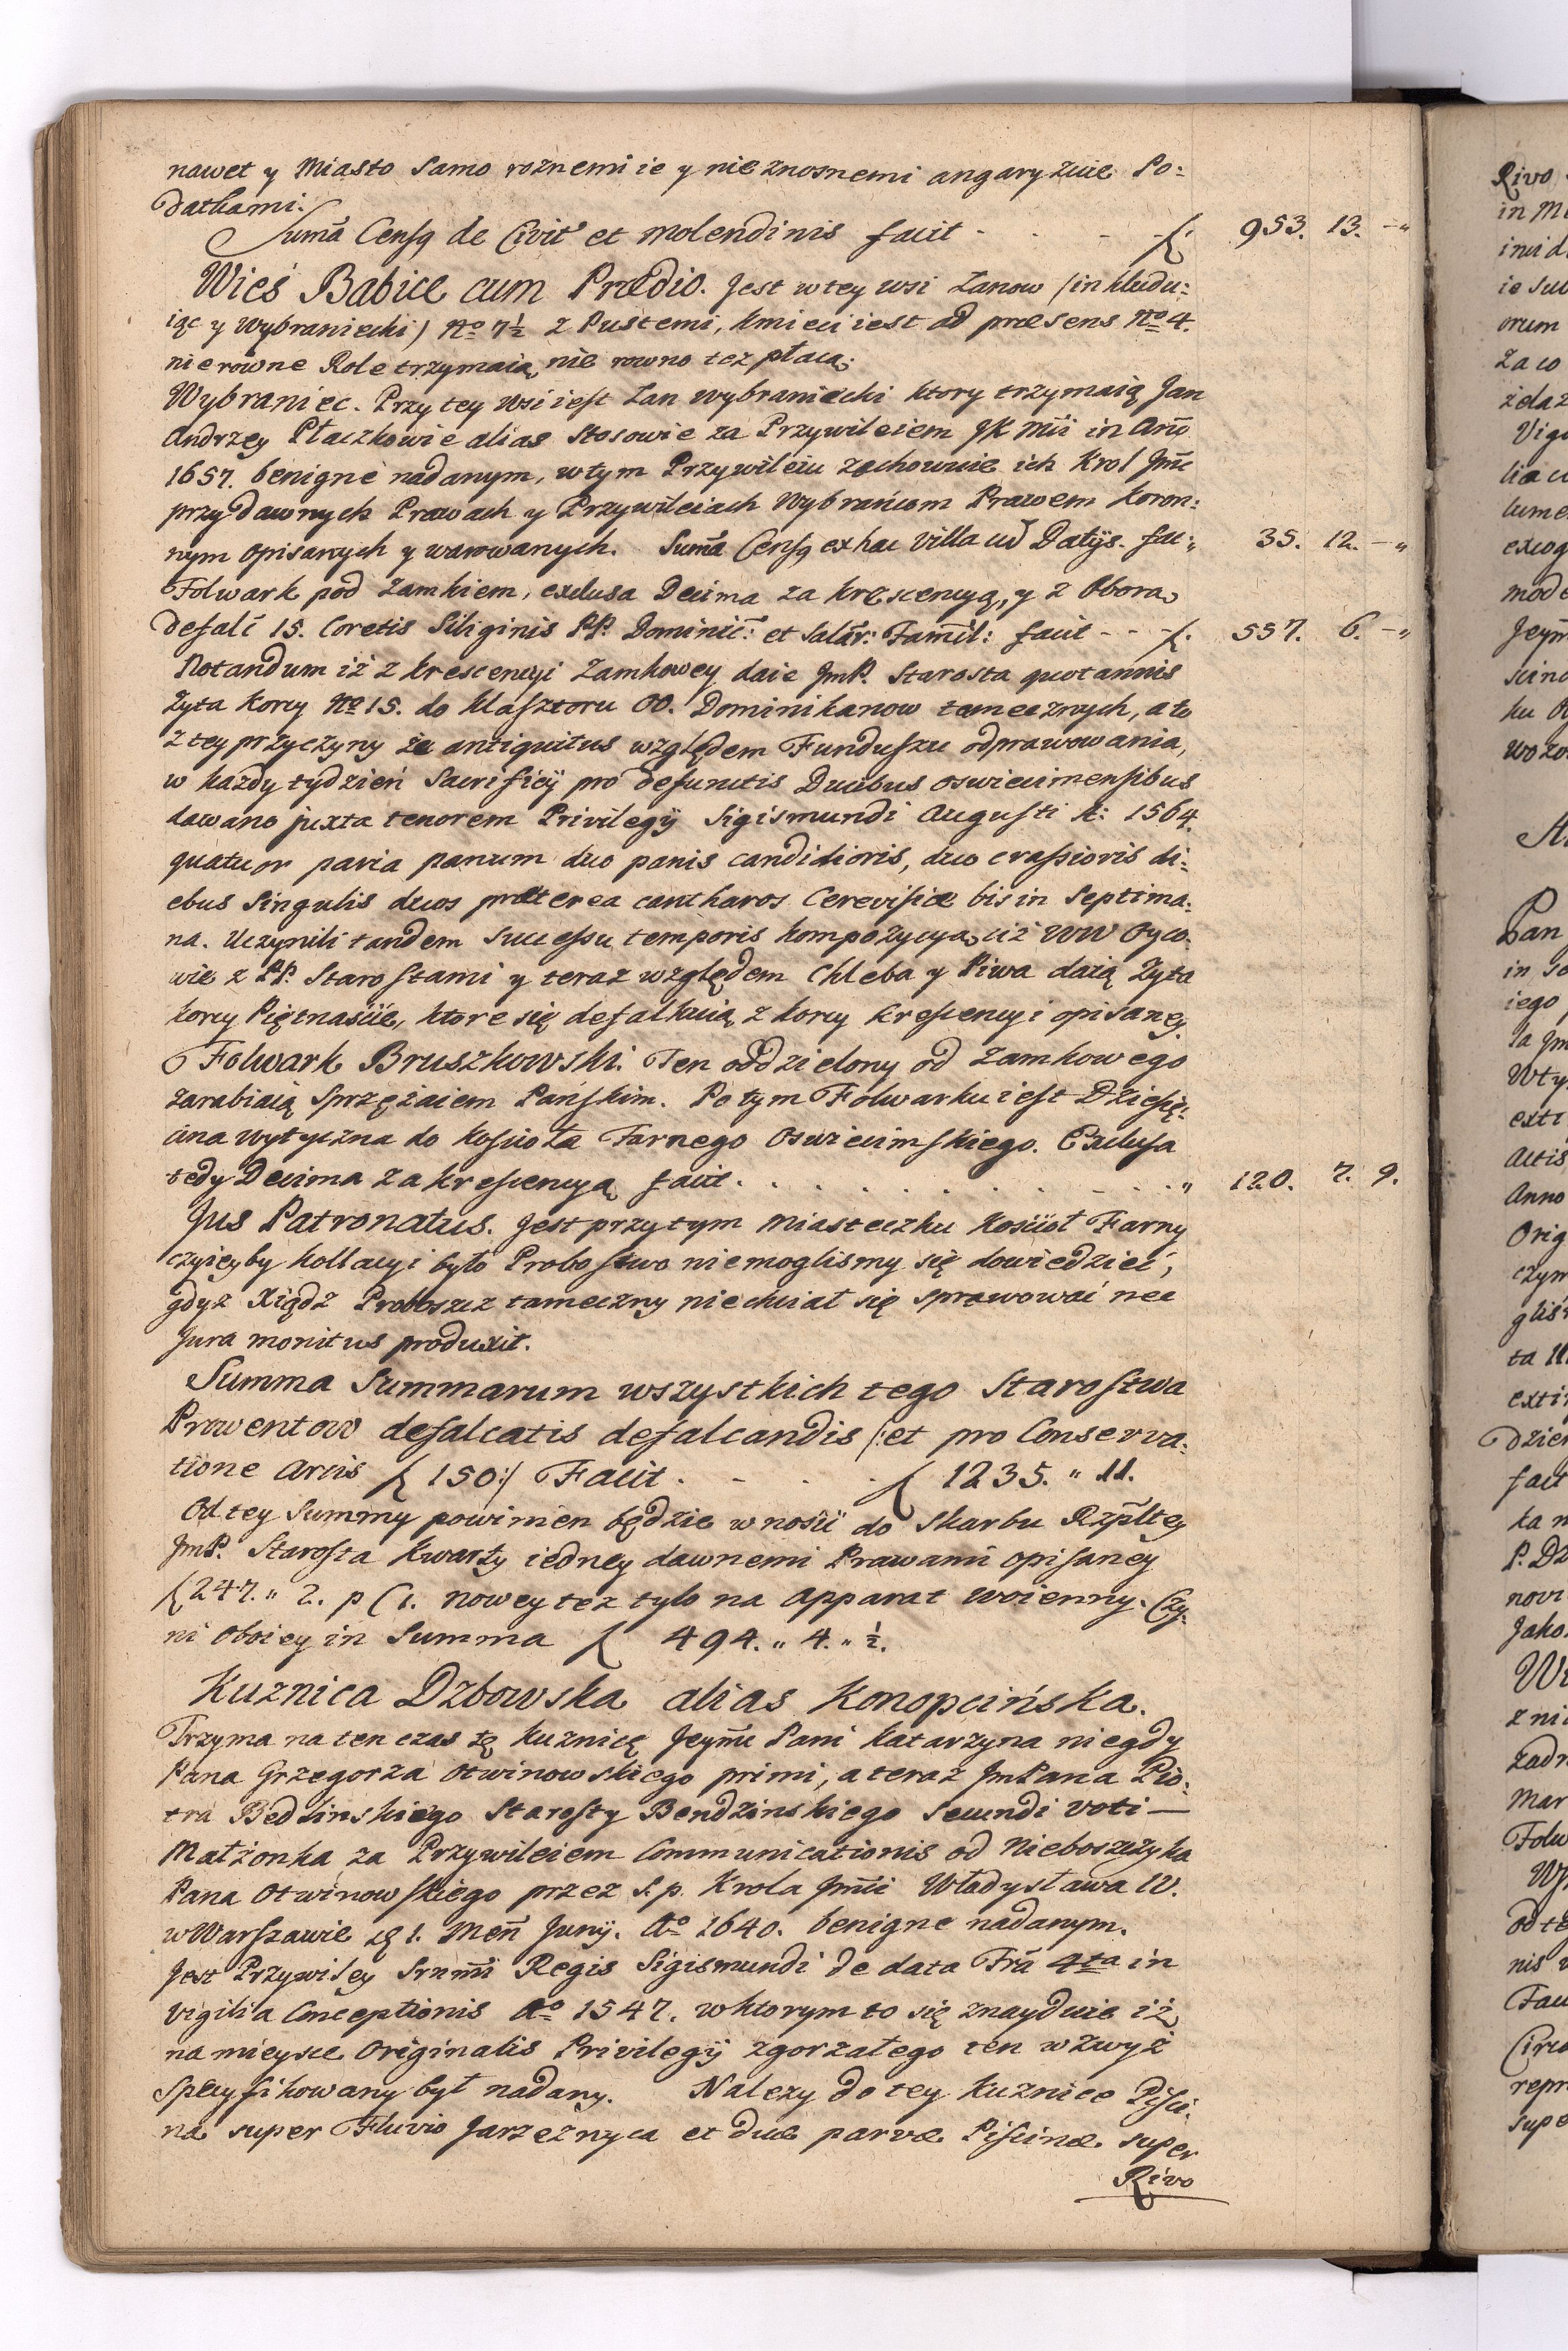 nawet y Miasto Samo roznemi ie y nieznosnemi angaryzuie Po:
datkami:
Sum̃a Censq de Civit et molendinis facit - - - f. 953. 13. -"
Wieś Babice cum Prædio. Jest w tey wsi Lanow /inkludu:
iąc y Wybraniecki) No 7½ z Pustemi, Kmieci iest ad præsens No 4.
nierowne Role trzymaią, nie rowno tez płacą.
Wybraniec. Przy tey Wsi iest Łan wybraniecki ktory trzymaią Jan
Andrzey Płaczkowie alias Stosowie za Przywileiem JK Mći in Añō
1657. benignè nadanym, w tym Przywileiu zachowuie ich Krol Jm̃c
przy dawnych Prawach y Przywileiach Wybrańcom Prawem Koron:
nym opisanych y warowanych. Sum̃a Censq ex hac Villa cũ Datijs. fac:" 35. 12. -"
Folwark pod Zamkiem, exclusa Decima za krescencyą, y z Oborą
defalc̃ 15. Coretis Siliginis PP. Dominic̃: et Salar̃: Fam̃il: facit - - - f. 557. 6. -"
Notandum iż z krescencyi Zamkowey daie JmP. Starosta quotannis
Zyta Korcy No 15. do Klasztoru OO. Dominikanow tamecznych, a to
z tey przyczyny że antiquitus względem Funduszu odprawowania,
w każdy tydzień Sacrificij pro defunctis Ducibus oswiecimensibus
dawano juxta tenorem Privilegij Sigismundi Augusti A: 1564.
quatuor paria panum duo panis candidioris, duo crassioris di:
ebus Singulis duos præterea cantharos Cerevisiæ bis in Septima:
na. Uczynili tandem Successu temporis kompozycyą ciż WW Oyco:
wie z PP. Starostami y teraz względem Chleba y Piwa daią Zyta
korcy Piętnaście, ktore się defalkuią z korcy krescencyi opisaney.
Folwark Bruszkowski. Ten oddzielony od Zamkowego
zarabiaią Sprzężaiem Pańskim. Po tym Folwarku iest Dziesię:
cina wytyczna do Kosciola Farnego Oswiecimskiego. Exclusa
tedy Decima za krescencyą facit. . . . . . . . " 120. 7. 9.
Jus Patronatus. Jest przy tym Miasteczku Kościoł Farny
czyieyby kollacyi było Probostwo niemoglismy się dowiedzieć,
gdyz Xiądz Proboszcz tameczny niechciał się sprawować nec
Jura monitus produxit.
Summa Summarum wszystkich tego Starostwa
Prowentow defalcatis defalcandis /:et pro Conserva:
tione Arcis f 150:/ Facit . - . . f 1235. " 11.
Od tey Summy powinien będzie wnosić do Skarbu Rzp̃ltey
JmP. Starosta Kwarty iedney dawnemi Prawami opisaney
f 247. " 2. p (1. nowey tez tylo na Apparat woienny. Czy:
ni Oboiey in Summa f 494. " 4. " ½.
Kuznica Dzbowska alias Konopcińska.
Trzyma na ten czas tę Kuznicę Jeym̃ć Pani Katarzyna niegdy
Pana Grzegorza Otwinowskiego primi, a teraz JmPana Pio:
tra Bedlinskiego Starosty Bendzinskiego Secundi voti —
Matżonka za Przywileiem Communicationis od Nieboszczyka
Pana Otwinowskiego przez S.p. Krola Jm̃ći Władysława IV.
w Warszawie 1. Meñ Junij. Ao 1640. benigne nadanym.
Jest Przywiley Srnm̃i Regis Sigismundi de data Fr̃a 4ta in
Vigilia Conceptionis Ao 1547. w ktorym to się znayduie iż
na mieysce Originalis Privilegij zgorzałego ten wzwyż
Specyfikowany był nadany. Nalezy do tey Kuznice Pisci:
na super Fluvio Jarzeznyca et duæ parvæ Piscinæ super
Rivo